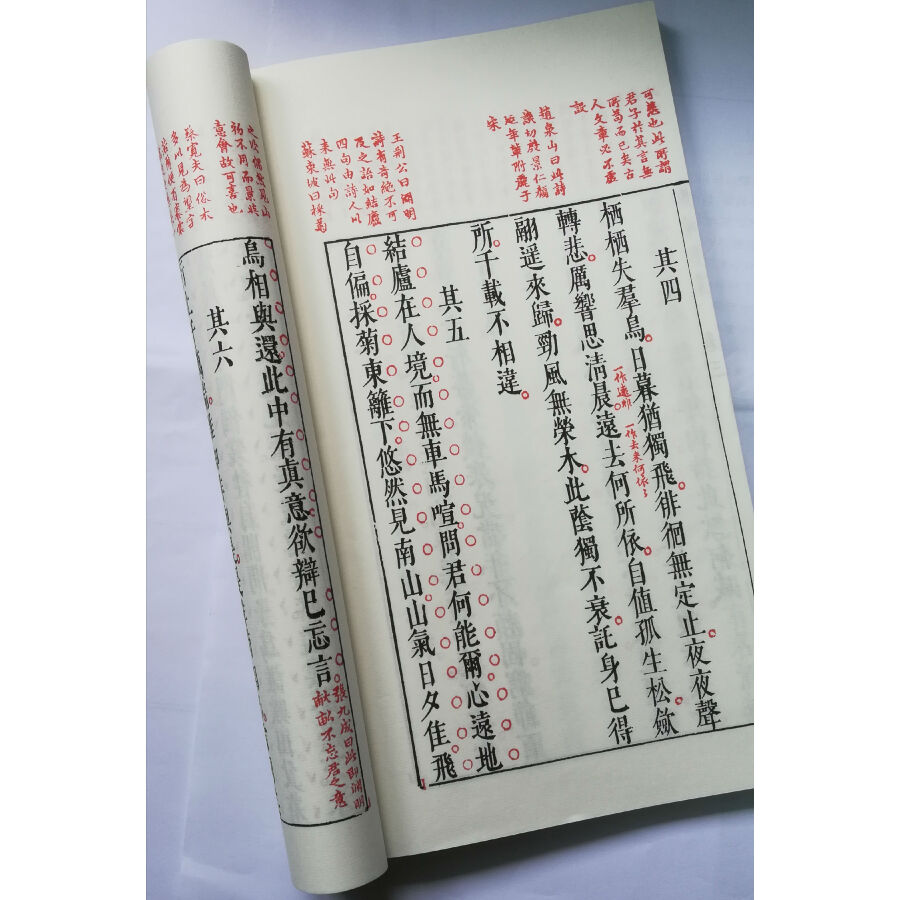 也此所謂
君子於其言無
所苟而已矣古
人文章必不虛
設
趙泉山曰此詩
譏切殷景仁顏
延年輩附麗于
宋
王荊公曰淵明
詩有奇絕不可
及之語如結廬
四句由詩人以
來無此句
蘇東坡曰採菊
之次偶然見山
初不用而景與
意會故可喜也
蔡寬夫曰俗本
多以見為望字
其四
栖栖失羣鳥日暮猶獨飛徘徊無定止夜夜聲
轉悲厲響思清晨遠去何所依自值孤生松歛
一作遠
一作去來何依
翮遥來歸勁風無榮木此蔭獨不衰託身已得
所千載不相違
其五
結廬在人境而無車馬喧問君何能爾心遠地
自偏採菊東籬下悠然見南山山氣日夕佳飛
鳥相與還此中有真意欲辯已忘言
張九成曰此即淵明
畎畝不忘君之意
其六